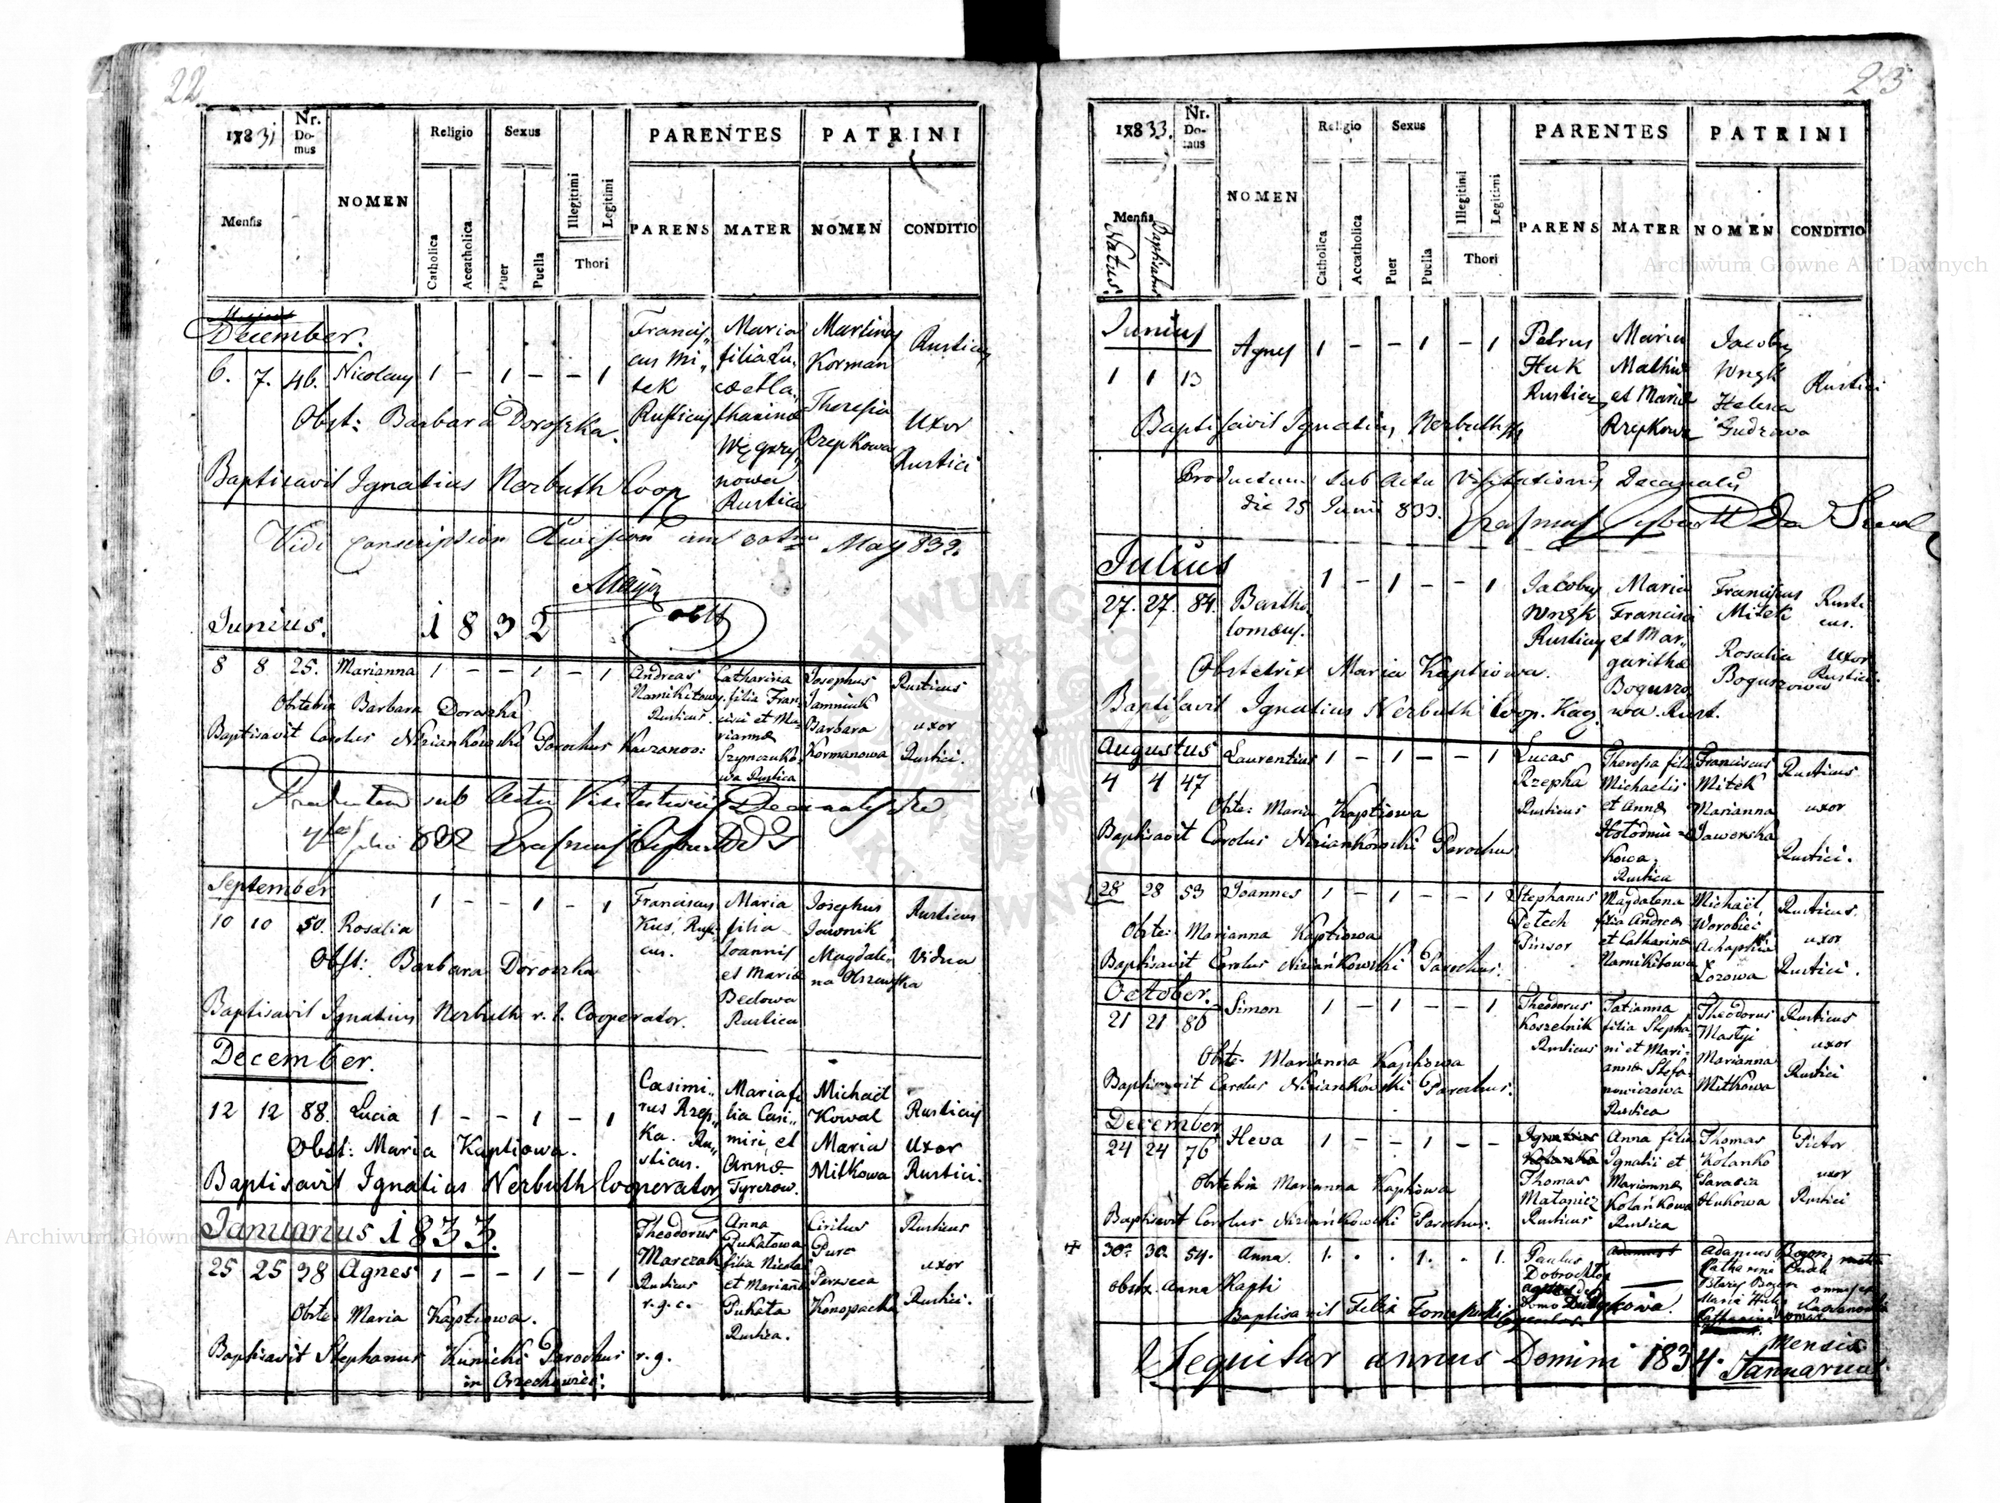 22
1883i
Nr. Domus
NOMEN
Religio
Sexus
Illegitimi
Legitimi
PARENTES
PATRINI
Mensis
Catholica
Accatholica
Puer
Puella
Thori
PARENS
MATER
NOMEN
CONDITIO
December.
6. 7. 46. Nicolaus 1 – 1 – – 1
Francis„
cus Mi„
tek
Rusticus
Maria
filia Lu„
cæ et Ca„
tharinæ
Węgrzy„
nowa
Rustica
Martinus
Korman
Theresia
Rzepkowa
Rusticus
Uxor
Rustici
Obst: Barbara Doroszka.
Baptisavit Ignatius Nerbuth Coop
Vidi May 832.
Junius. 1832
8 8 25. Marianna 1 – – 1 – 1
Andreas
Namikitowy
Rusticus.
Catharina
filia Fran
cisci et Ma
riannæ
Szymczukó
wa Rustica
Josephus
Jamniuk
Barbara
Kormanowa
Rusticus
uxor
Rustici.
Obstetrix Barbara Doroszka
Baptisavit Carolus Niziankowski Parochus Kaczanov:
Productum sub Actu Visitationis Decanalis die
Julii 832
September
10 10 50. Rosalia 1 – – 1 – 1
Franciscus
Kuś, Rusti
cus.
Maria
filia
Joannis
et Mariæ
Bedowa
Rustica
Josephus
Jawnik
Magdale
na Olszewska
Rusticus
Vidua
Obst: Barbara Doroszka
Baptisavit Ignatius Nerbuth r. l. Cooperator.
December.
12 12 88. Lucia 1 – – 1 – 1
Casimi„
rus Rzep„
ka. Ru„
sticus.
Maria fi
lia Casi„
miri et
Annæ
Tyrczow.
Michael
Kowal
Maria
Mitkowa
Rusticus
Uxor
Rustici.
Obst: Maria Kaptiowa.
Baptisavit Ignatius Nerbuth Cooperator
Januarius 1833.
25 25 38 Agnes 1 – – 1 – 1
Theodorus
Marczak
Rusticus
r. g. c.
Anna
Pukatowa
filia Nicolai
et Mariannæ
Pukata
Rustica.
Cirilus
Purc
Parascea
Konopacka
Rusticus
uxor
Rustici.
Obste Maria Kaptiowa.
Baptisavit Stephanus Kunicki Parochus r. g.
in Orzechowice:
23
18833.
Nr. Domus
NOMEN
Religio
Sexus
Illegitimi
Legitimi
PARENTES
PATRINI
Mensis
Natus.
Baptisatus
Catholica
Accatholica
Puer
Puella
Thori
PARENS
MATER
NOMEN
CONDITIO
Junius
1 1 13 Agnes 1 – – 1 – 1
Petrus
Huk
Rusticus
Maria
Mathiæ
et Mariæ
Rzepkowa
Jacobus
Wnęk
Helena
Gudzowa
Rustici
Baptisavit Ignatius Nerbuth
Productum sub Actu Visitationis Decanalis
die 25 Junii 833.
Julius
27. 27. 84. Bartho
lomæus. 1 – 1 – – 1
Jacobus
Wnęk
Rusticus
Maria
Francisci
et Mar„
garithæ
Boguszo
wa Rust.
Franciscus
Mitek
Rosalia
Boguszowa
Rusti
cus.
Uxor
Rustici
Obstetrix Maria Kaptiowa.
Baptisavit Ignatius Nerbuth Coop. Kacz.
Augustus
4 4 47 Laurentius 1 – 1 – – 1
Lucas
Rzepka
Rusticus
Theresia filia
Michaelis
et Annæ
Hołodniu
kowa
Rustica
Franciscus
Mitek
Marianna
Jaworska
Rusticus
uxor
Rustici.
Obste: Maria Kaptiowa
Baptisavit Carolus Niziankowski Parochus
28 28 53 Joannes 1 – 1 – – 1
Stephanus
Petech
Pinsor
Magdalena
filia Andreæ
et Catharinæ
Namikitowa
Michaël
Worobiéi
Achaphia
Łozowa
Rusticus.
uxor
Rustici.
Obste: Marianna Kaptiowa
Baptisavit Carolus Niziańkowski Parochus.
October.
21 21 80 Simon 1 – 1 – – 1
Theodorus
Koszelnik
Rusticus
Tatianna
filia Stepha
ni et Mari
annæ Stefa
nowiczowa
Rustica
Theodorus
Mastyi
Marianna
Mitkowa
Rusticus
uxor
Rustici
Obste: Marianna Kaptiowa
Baptisavit Carolus Niziankowski Parochus.
December
24 24 76 Heva 1 – – 1 – –
Ignatius
Kolanko
Thomas
Mataniez
Rusticus
Anna filia
Ignatii et
Mariannæ
Kolańkowa
Rustica
Thomas
Kolanko
Parascia
Hukowa
Pictor
uxor
Rustici
Obstetrix Marianna Kaptiowa
Baptisavit Carolus Niziańkowski Parochus.
+ 30. 30. 54. Anna. 1. . . 1. . 1.
Paulus
Dobrochłop
Adamus Bogon
Catharina
Maria Huk
omnes ex
Obstx. Anna Kapti
Baptisavit Felix Tomaszewski
Sequitur annus Domini 1834. Mensis
Januarius.
Archiwum Główne Akt Dawnych